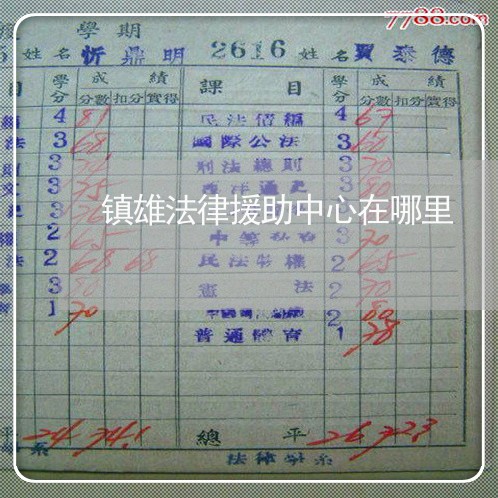 7788.com
學期
姓名 忻鼎明 2616 姓名 賈泰德
目 學分 成績 課目 學分 成績
分數 扣分 實得 分數 扣分 實得
4 81 民法債編 4 67
法 3 68 國際公法 3 60
3 刑法總則 3 70
3 75 西洋通史 3 80
镇雄法律援助中心在哪里
2 65 3 70
法 2 68 68 民法物權 2 65
3 80 憲法 2 70
1 70 2 80
普通體育 1 78
平 24 74.1 總平 26 72.3
系 法律學系